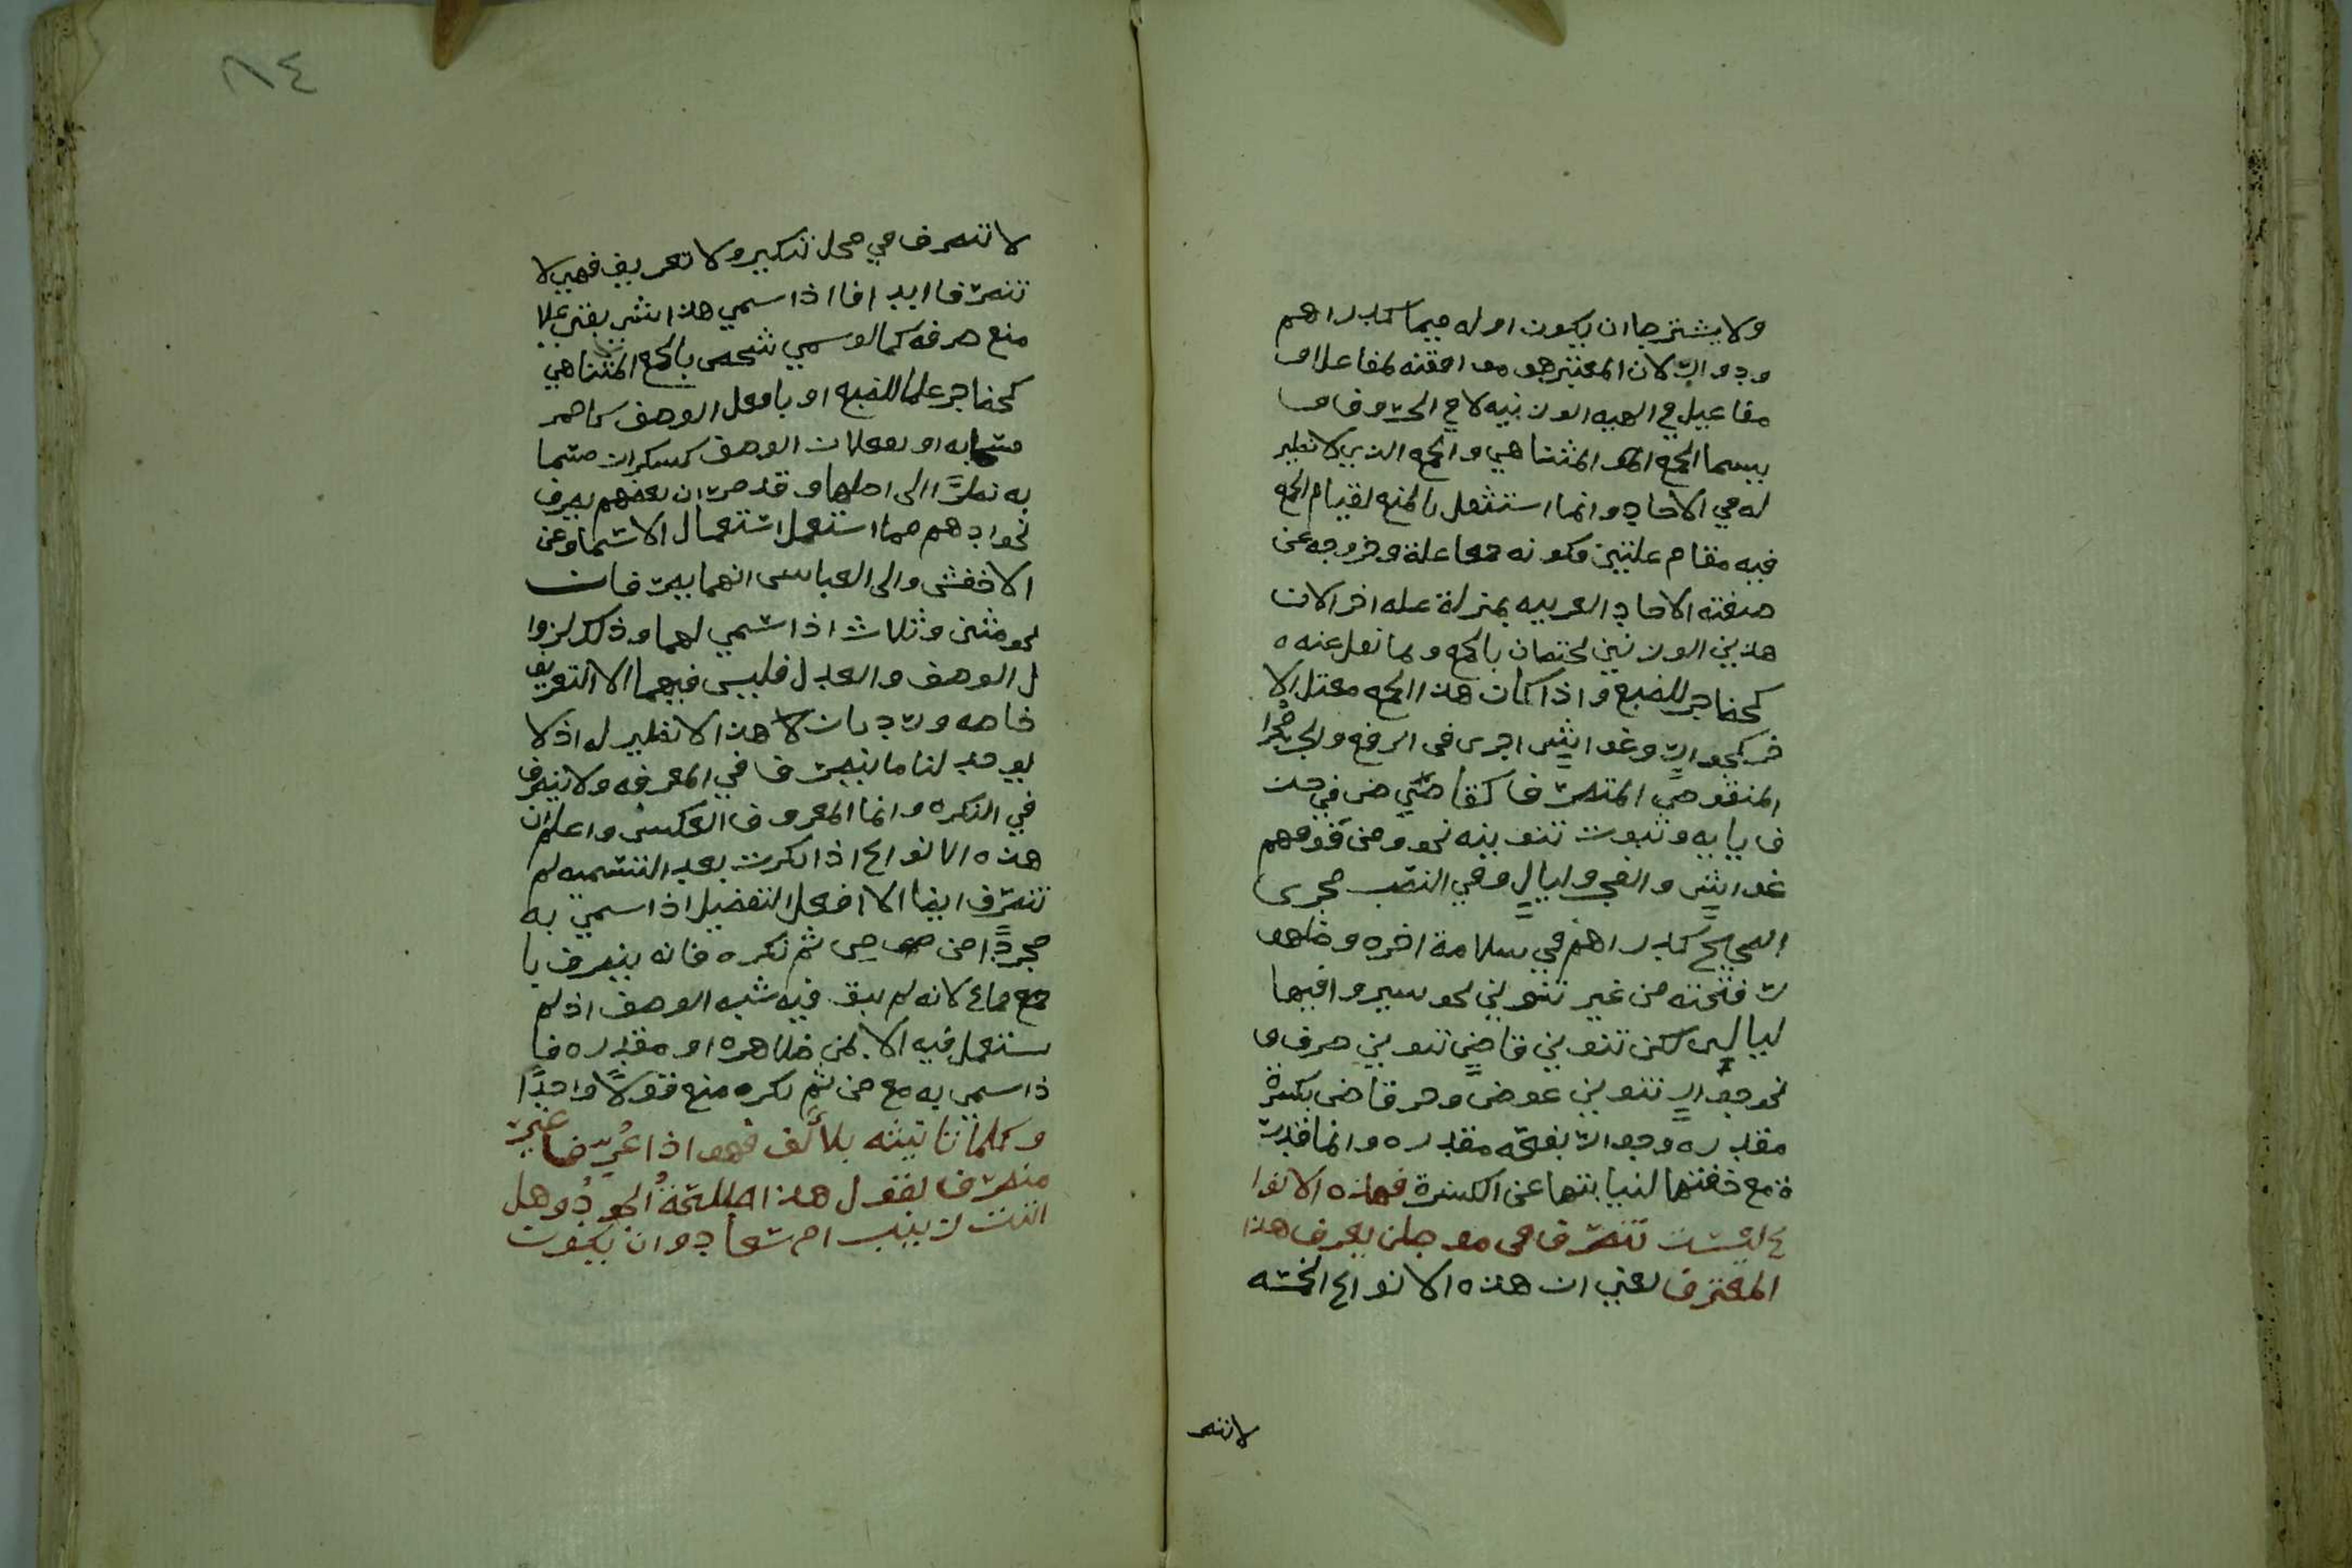 ولا يشترط ان يكون اوله ميما كدراهم
ودواب لان المعتبر هو موافقته لمفاعل او
مفاعيل في الهيه الوزنيه لا في الحروف و
يسما الجمع المتناهي والجمع الذي لا نظير
له في الاحاد وانما استقل بالمنع لقيام الجمع
فيه مقام علتين فكونه جمعا علة وخروجه عن
صيغته الاحاد العربيه بمنزلة عله اخر الان
هذين الوزنين يختصان بالجمع وبما نقل عنه ه
كحضاجر للضبع واذا كان هذا الجمع معتل الا
خر كجوارٍ وغواشٍ اجرى في الرفع والجر مجرا
المنقوص المنصرف كقاضٍ في حذ
ف يايه وثبوت تنوينه نحو ومن فوقهم
غواشٍ والفجر وليالٍ وفي النصب مجرى
الصحيح كدراهم في سلامة اخره وظهو
ر فتحته من غير تنوين نحو سيروا فيها
ليالي لكن تنوين قاضٍ تنوين صرف و
نحو جوارٍ تنوين عوض وجر قاض بكسرة
مقدره وجوار بفتحه مقدره وانما قدرت
ة مع خفتها لنيابتها عن الكسرة فهذه الانوا
ع ليست تنصرف في موطن يعرف هذا
المعترف يعني ان هذه الانواع الخمسه
لا تنصر
٨٤
لا تنصرف في محل تنكير ولا تعريف فهي لا
تنصرف ابدا فاذا سمي هذا الشي بقي علا
منع صرفه كما لو سمي شخص بالجمع المتناهي
كحضاجر علما للضبع او بافعل الوصف كاحمر
او بفعلان الوصف كسكران مسما
به نظرًا الى اصلها وقد مر ان بعضهم يصرف
نحو ادهم مما استعمل استعمال الاسما وعن
الاخفش وابي العباس انهما يصرفان
نحو مثنى وثلاث اذا سمي بهما وذلك لزوا
ل الوصف والعدل فليس فيهما الا التعريف
خاصه ورد بان هذا لا نظير له اذ لا
يوجد لنا ما ينصرف في المعرفه ولا ينصرف
في النكره وانما المعروف العكس واعلم ان
هذه الانواع اذا نكرت بعد التسميه لم
تنصرف ايضا الا افعل التفضيل اذا سمي به
مجردًا من من ثم نكره فانه ينصرف با
جماع لانه لم يبق فيه شبه الوصف اذ لم
يستعمل فيه الا بمن ظاهره او مقدره فا
ذا سمي به مع من ثم نكره منع قولًا واحدًا
وكلما تانيثه بلا الف فهو اذا عُرِّف غير
منصرف تقول هذا طلحةُ الجوادُ وهل
اتت زينب ام سعاد وان يكون